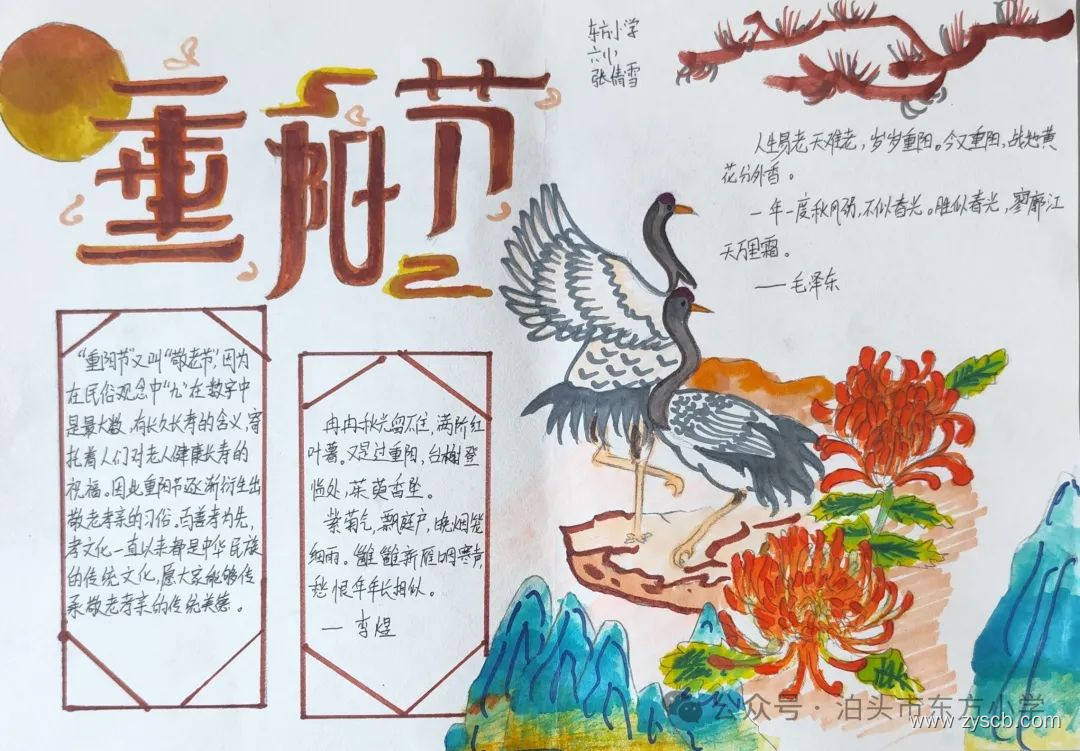 重阳节
东方小学
六小
张倩雪
人生易老天难老，岁岁重阳。今又重阳，战地黄
花分外香。
一年一度秋风劲，不似春光。胜似春光，寥廓江
天万里霜。
——毛泽东
“重阳节”又叫“敬老节”，因为
在民俗观念中“九”在数字中
是最大数，有长久长寿的含义，寄
托着人们对老人健康长寿的
祝福。因此重阳节逐渐衍生出
敬老孝亲的习俗。百善孝为先，
孝文化一直以来都是中华民族
的传统文化，愿大家能够传
承敬老孝亲的传统美德。
冉冉秋光留不住，满阶红
叶暮。又是过重阳，台榭登
临处，茱萸香坠。
紫菊气，飘庭户，晚烟笼
细雨。雝雝新雁咽寒声，
愁恨年年长相似。
——李煜
公众号·泊头市东方小学
www.zyscb.com